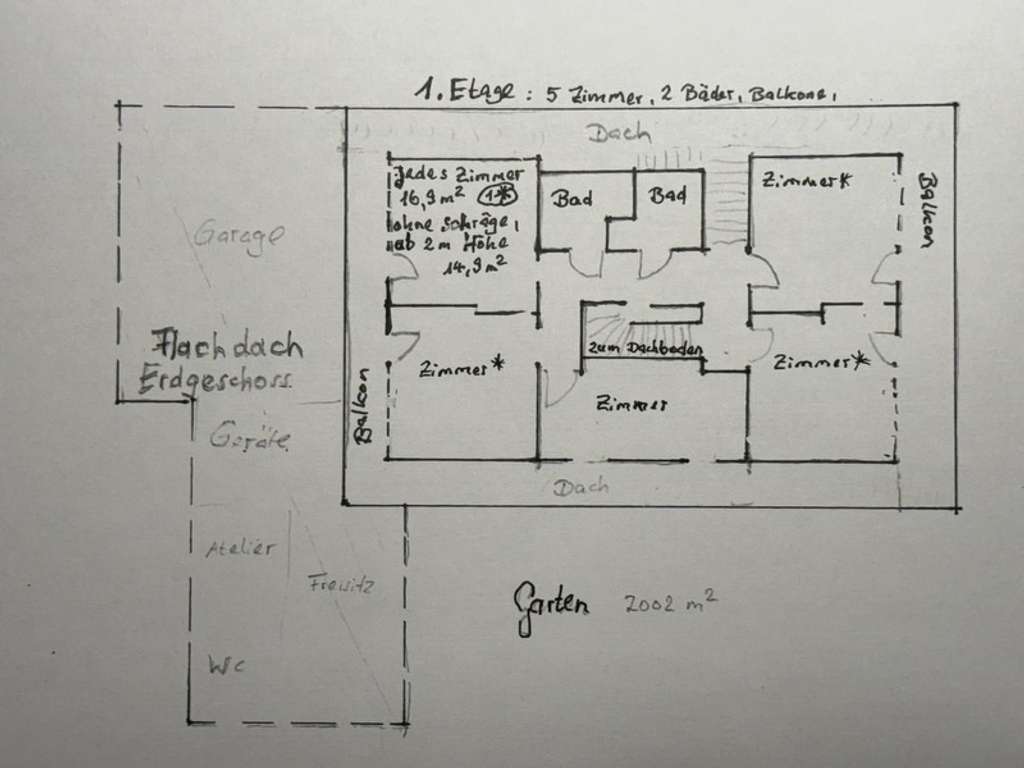 1. Etage : 5 Zimmer, 2 Bäder, Balkone,
Dach
Jedes Zimmer
16,9 m² 1*
ohne schräge,
ab 2 m Höhe
14,9 m²
Bad
Bad
Zimmer*
Balkon
Garage
Flachdach
Erdgeschoss
zum Dachboden
Zimmer*
Zimmer*
Balkon
Zimmer
Geräte
Dach
Atelier
Freisitz
Garten 2002 m²
WC